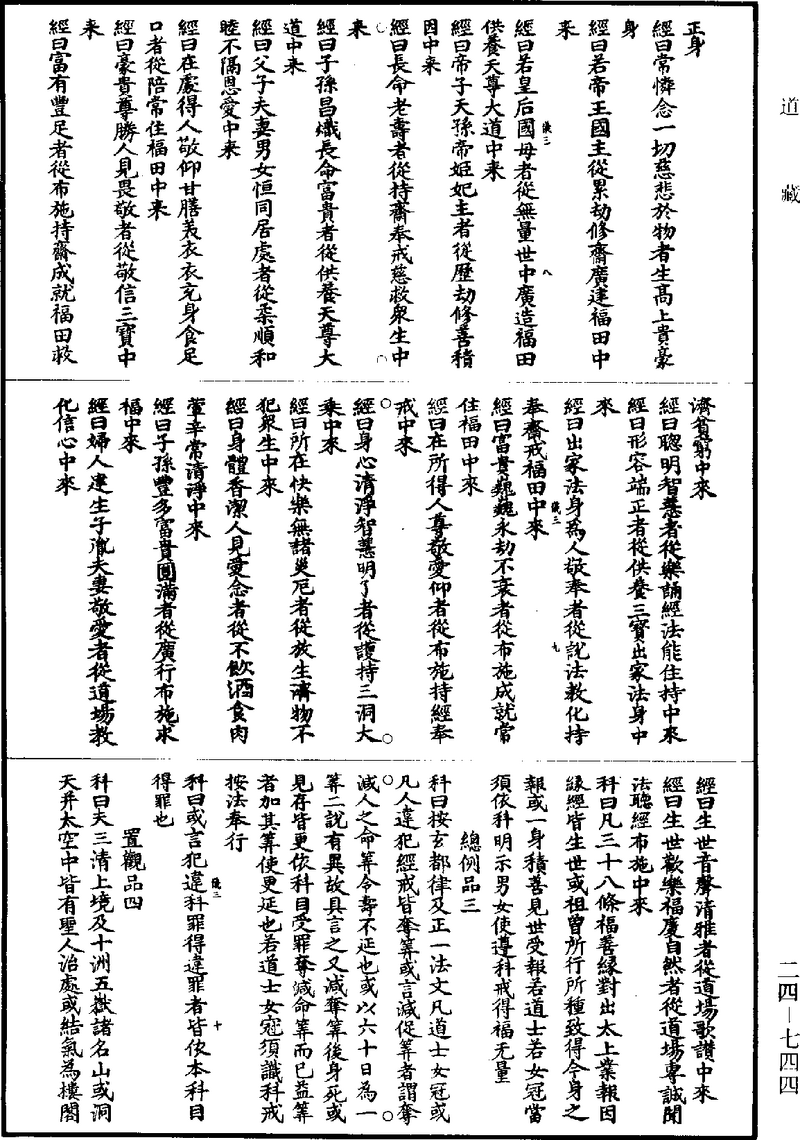 道藏
正身
經曰常憐念一切慈悲於物者生高上貴豪
身
經曰若帝王國主從累劫修齋廣建福田中
來
經曰若皇后國母者從無量世中廣造福田
供養天尊大道中來
儀三
八
經曰帝子天孫帝姬妃主者從歷劫修善積
因中來
經曰長命老壽者從持齋奉戒慈救衆生中
來
經曰子孫昌熾長命富貴者從供養天尊大
道中來
經曰父子夫妻男女恒同居處者從柔順和
睦不隔恩愛中來
經曰在處得人敬仰甘膳美衣衣充身食足
口者從陪常住福田中來
經曰豪貴尊勝人見畏敬者從敬信三寶中
來
經曰富有豐足者從布施持齋成就福田救
濟貧窮中來
經曰聰明智慧者從樂誦經法能住持中來
經曰形容端正者從供養三寶出家法身中
來
經曰出家法身為人敬奉者從說法教化持
奉齋戒福田中來
儀三
九
經曰富貴巍巍永劫不衰者從布施成就常
住福田中來
經曰在所得人尊敬愛仰者從布施持經奉
戒中來
經曰身心清淨智慧明了者從護持三洞大
乘中來
經曰所在快樂無諸災厄者從放生濟物不
犯衆生中來
經曰身體香潔人見愛念者從不飲酒食肉
葷辛常清淨中來
經曰子孫豐多富貴圓滿者從廣行布施求
福中來
經曰婦人連生子胤夫妻敬愛者從道場教
化信心中來
經曰生世音聲清雅者從道場歌讚中來
經曰生世歡樂福慶自然者從道場專誠聞
法聽經布施中來
科曰凡三十八條福善緣對出太上業報因
緣經皆生世或祖曾所行所種致得今身之
報或一身積善見世受報若道士若女冠當
須依科明示男女使遵科戒得福无量
總例品三
科曰按玄都律及正一法文凡道士女冠或
凡人違犯經戒皆奪筭或言減促筭者謂奪
減人之命筭令壽不延也或以六十日為一
筭二說有異故具言之又減奪筭後身死或
見存皆更依科目受罪奪減命筭而已益筭
者加其筭使更延也若道士女冠須識科戒
按法奉行
儀三
十
科曰或言犯違科罪得違罪者皆依本科目
得罪也
置觀品四
科曰夫三清上境及十洲五嶽諸名山或洞
天并太空中皆有聖人治處或結氣為樓閣
二四—七四四